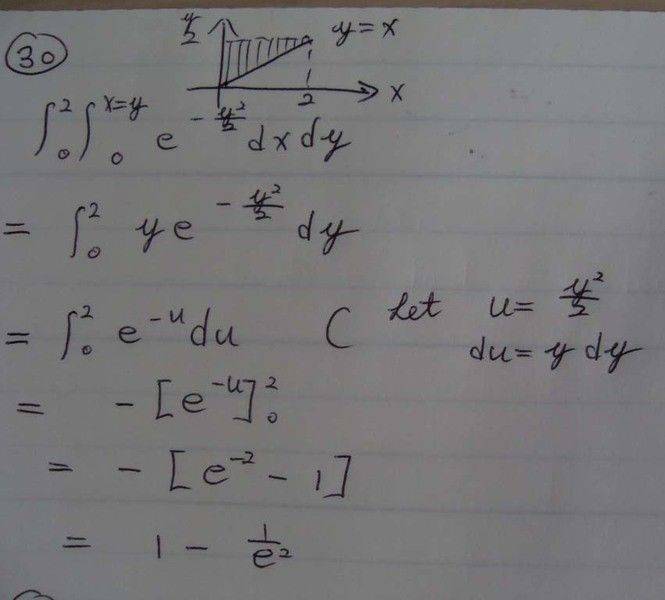 30
y
2
y = x
2
x
∫₀² ∫₀^{x=y} e^{-y²/2} dx dy
= ∫₀² y e^{-y²/2} dy
= ∫₀² e^{-u} du ( let u = y²/2
du = y dy
= - [e^{-u}]₀²
= - [e^{-2} - 1]
= 1 - 1/e²